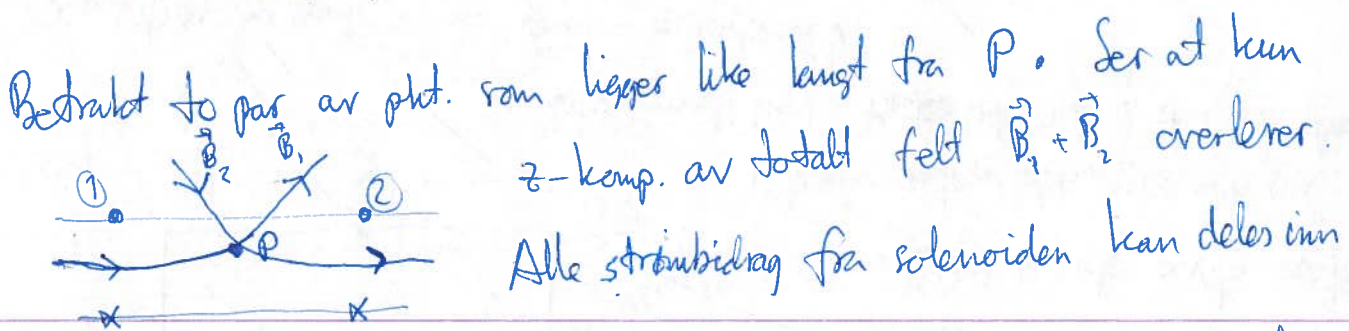 Betrakt to par av pkt. som ligger like langt fra P. Ser at kun
z-komp. av totalt felt B⃗₁ + B⃗₂ overlever.
Alle strømbidrag fra solenoiden kan deles inn
B⃗₂ B⃗₁
① ②
P